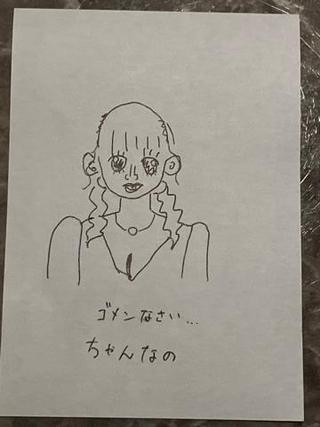 ゴメンなさい...
ちゃんなの